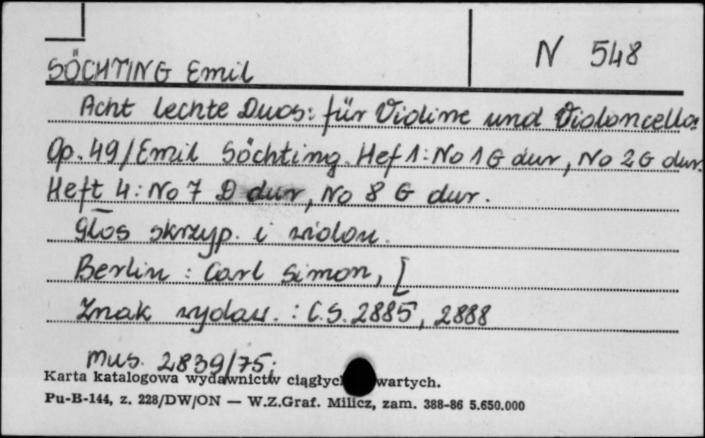 N 548
SÖCHTING Emil
Acht lechte Duos: für Violine und Violoncello:
Op. 49/Emil Söchting. Hef 1: No 1 G dur, No 2 G dur.
Heft 4: No 7 D dur, No 8 G dur.
Głos skrzyp. i wiolon.
Berlin : Carl Simon, [
Znak wydaw. : C.S. 2885, 2888
Mus. 2839/75.
Karta katalogowa wydawnictw ciągłyc wartych.
Pu-B-144, z. 228/DW/ON — W.Z.Graf. Milicz, zam. 388-86 5.650.000